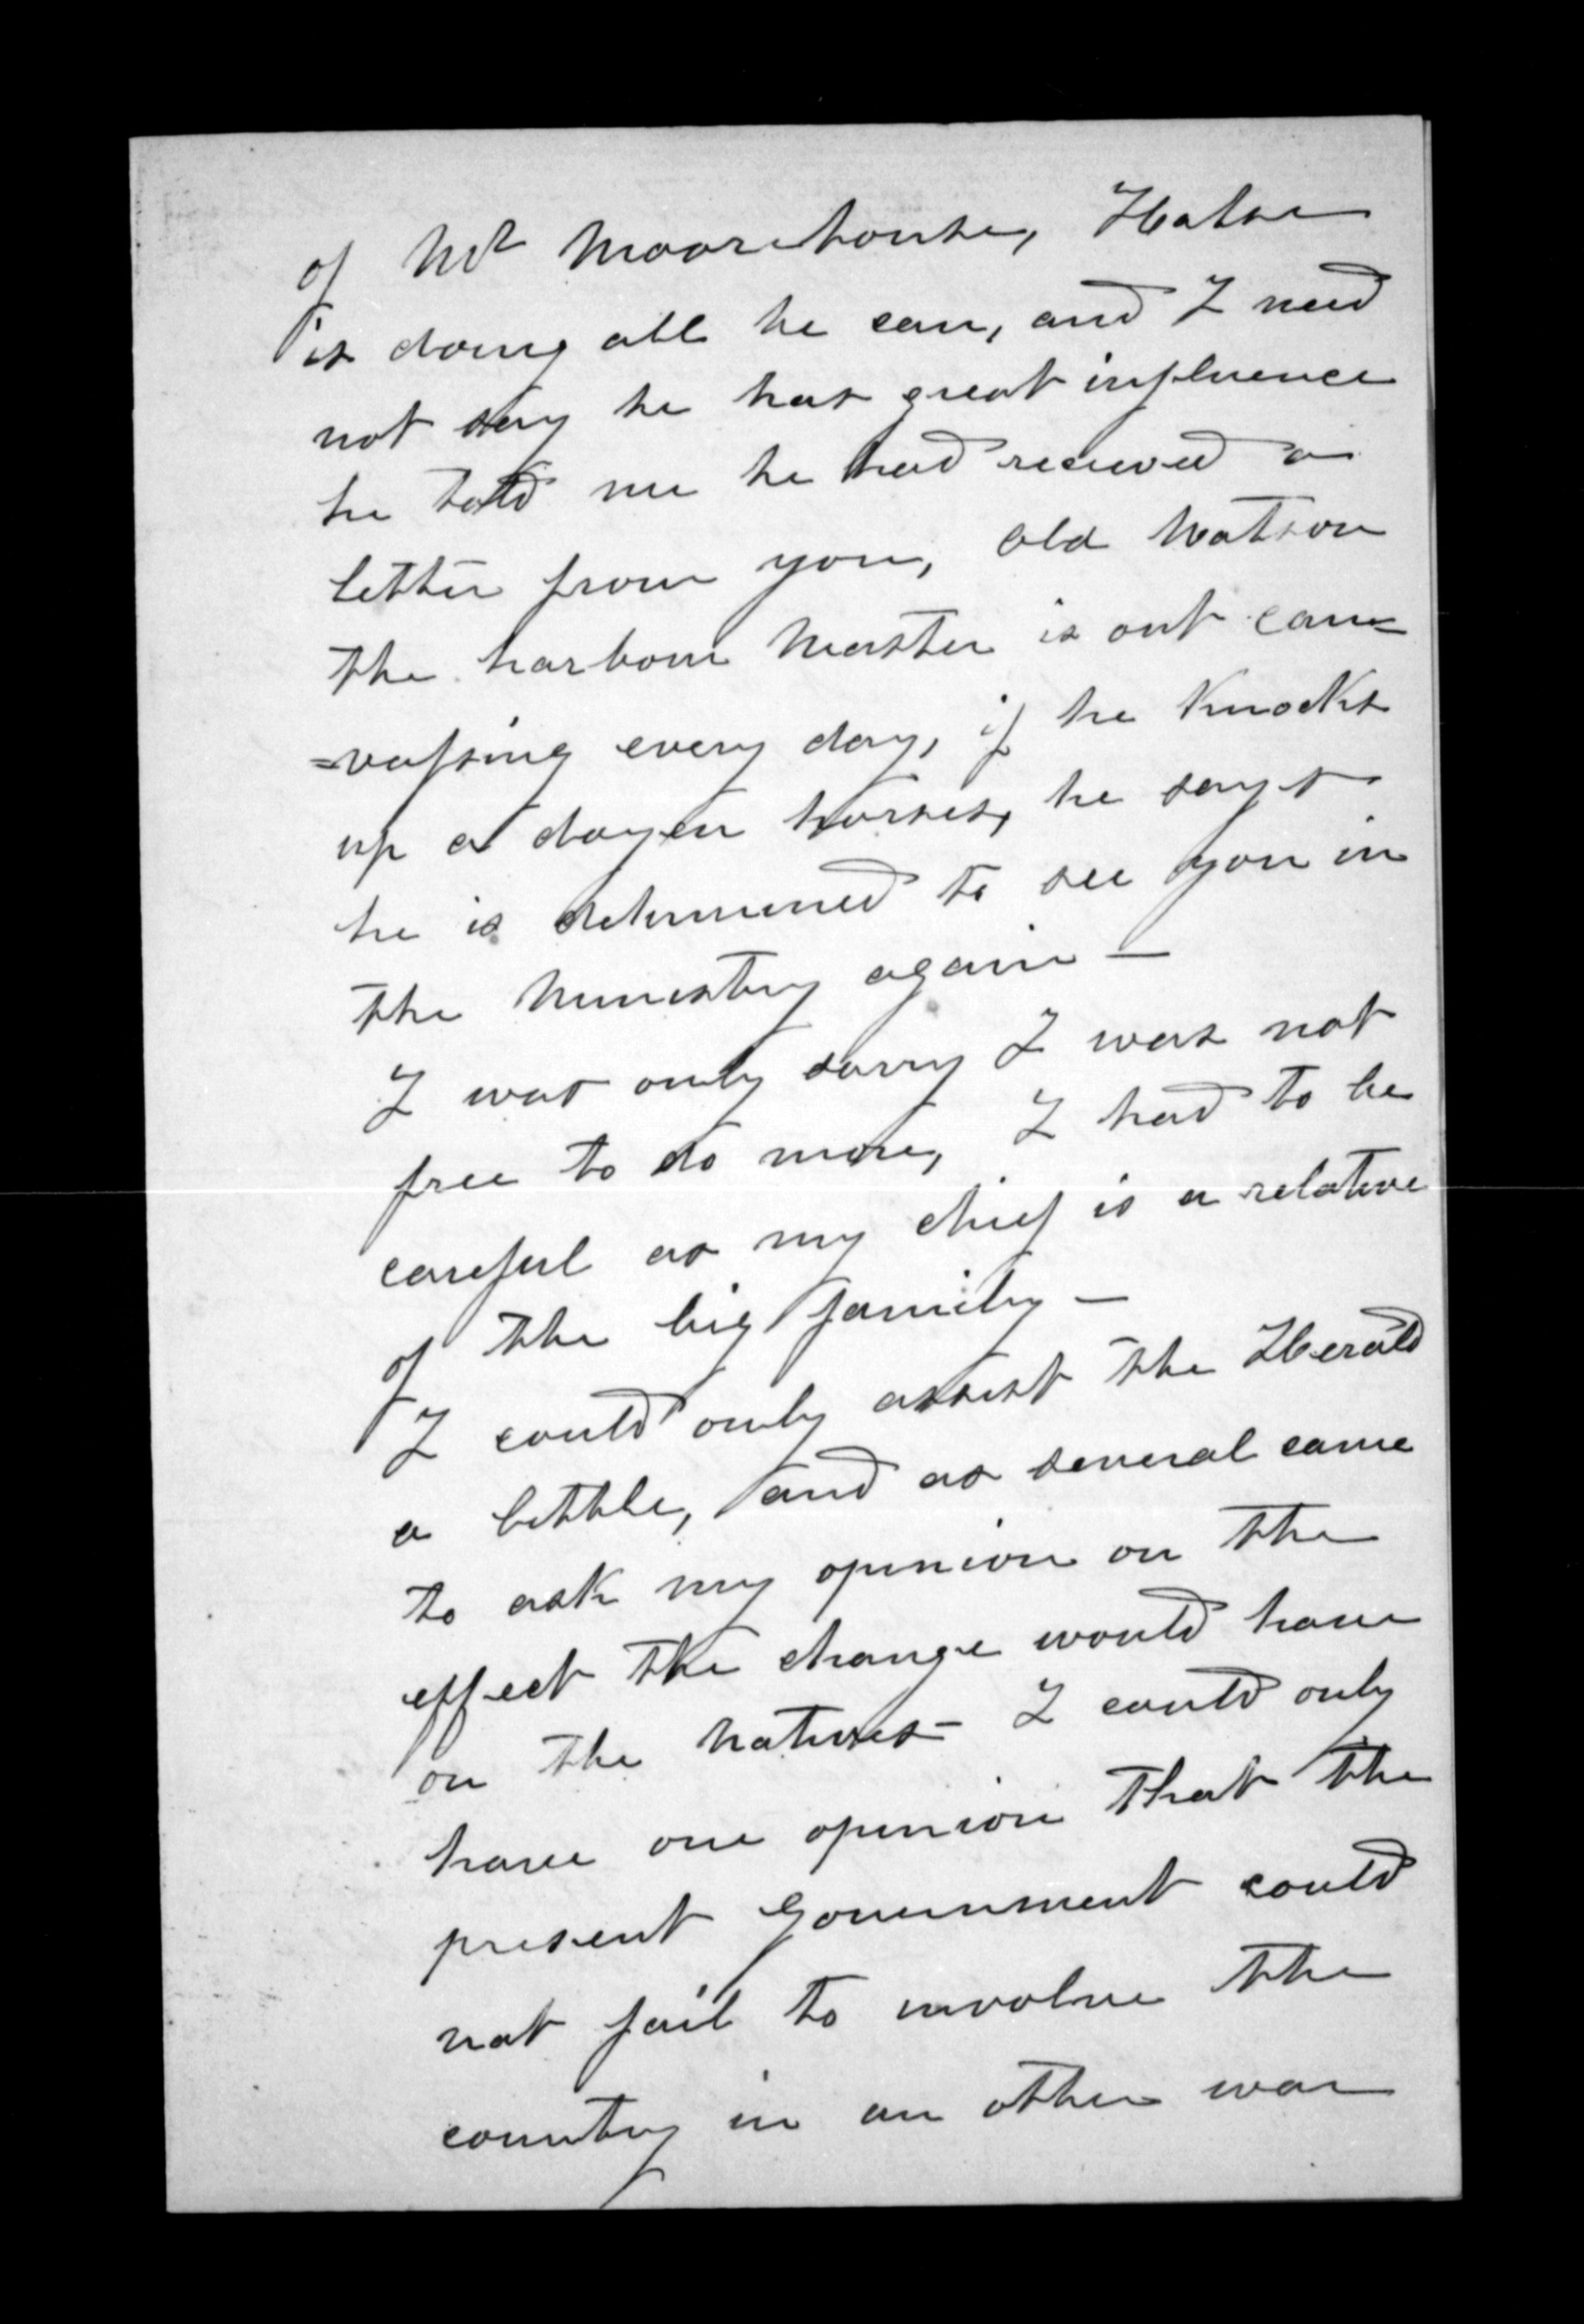 of Mr Moorehouse, Halse
is doing all he can, and I need
not say he has great influence
he told me he had received a
letter from you, Old Watson
the harbour Master is out can=
=vassing every day, if he Knocks
up a dozen horses, he says
he is determined to see you in
the Ministry again —
I was only sorry I was not
free to do more, I had to be
careful as my chief is a relative
of the big family —
I could only assist the Herald
a little, and as several came
to ask my opinion on the
effect the change would have
on the Natives — I could only
have one opinion that the
present Government could
not fail to involve the
country in an other war